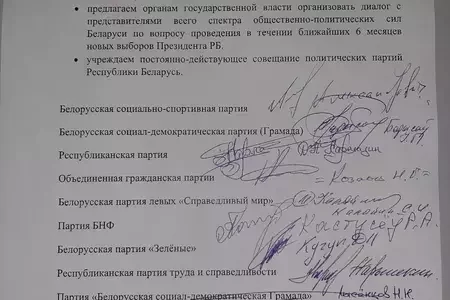 • предлагаем органам государственной власти организовать диалог с
представителями всего спектра общественно-политических сил
Беларуси по вопросу проведения в течении ближайших 6 месяцев
новых выборов Президента РБ.
• учреждаем постоянно-действующее совещание политических партий
Республики Беларусь.
Белорусская социально-спортивная партия
Белорусская социал-демократическая партия (Грамада) Борисов
Республиканская партия
Объединенная гражданская партия = Козлов Н.В. =
Белорусская партия левых «Справедливый мир»
Партия БНФ Кастусёў Р.А.
Белорусская партия «Зелёные» Кучук Д.И
Республиканская партия труда и справедливости
Партия «Белорусская социал-демократическая Грамада»